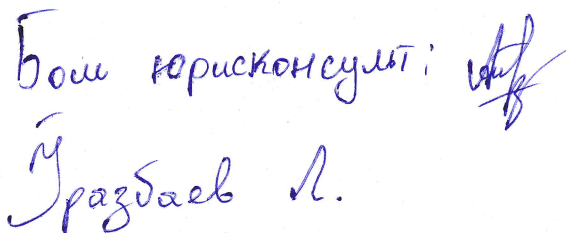 Бош юрисконсульт:
Ўразбаев Л.